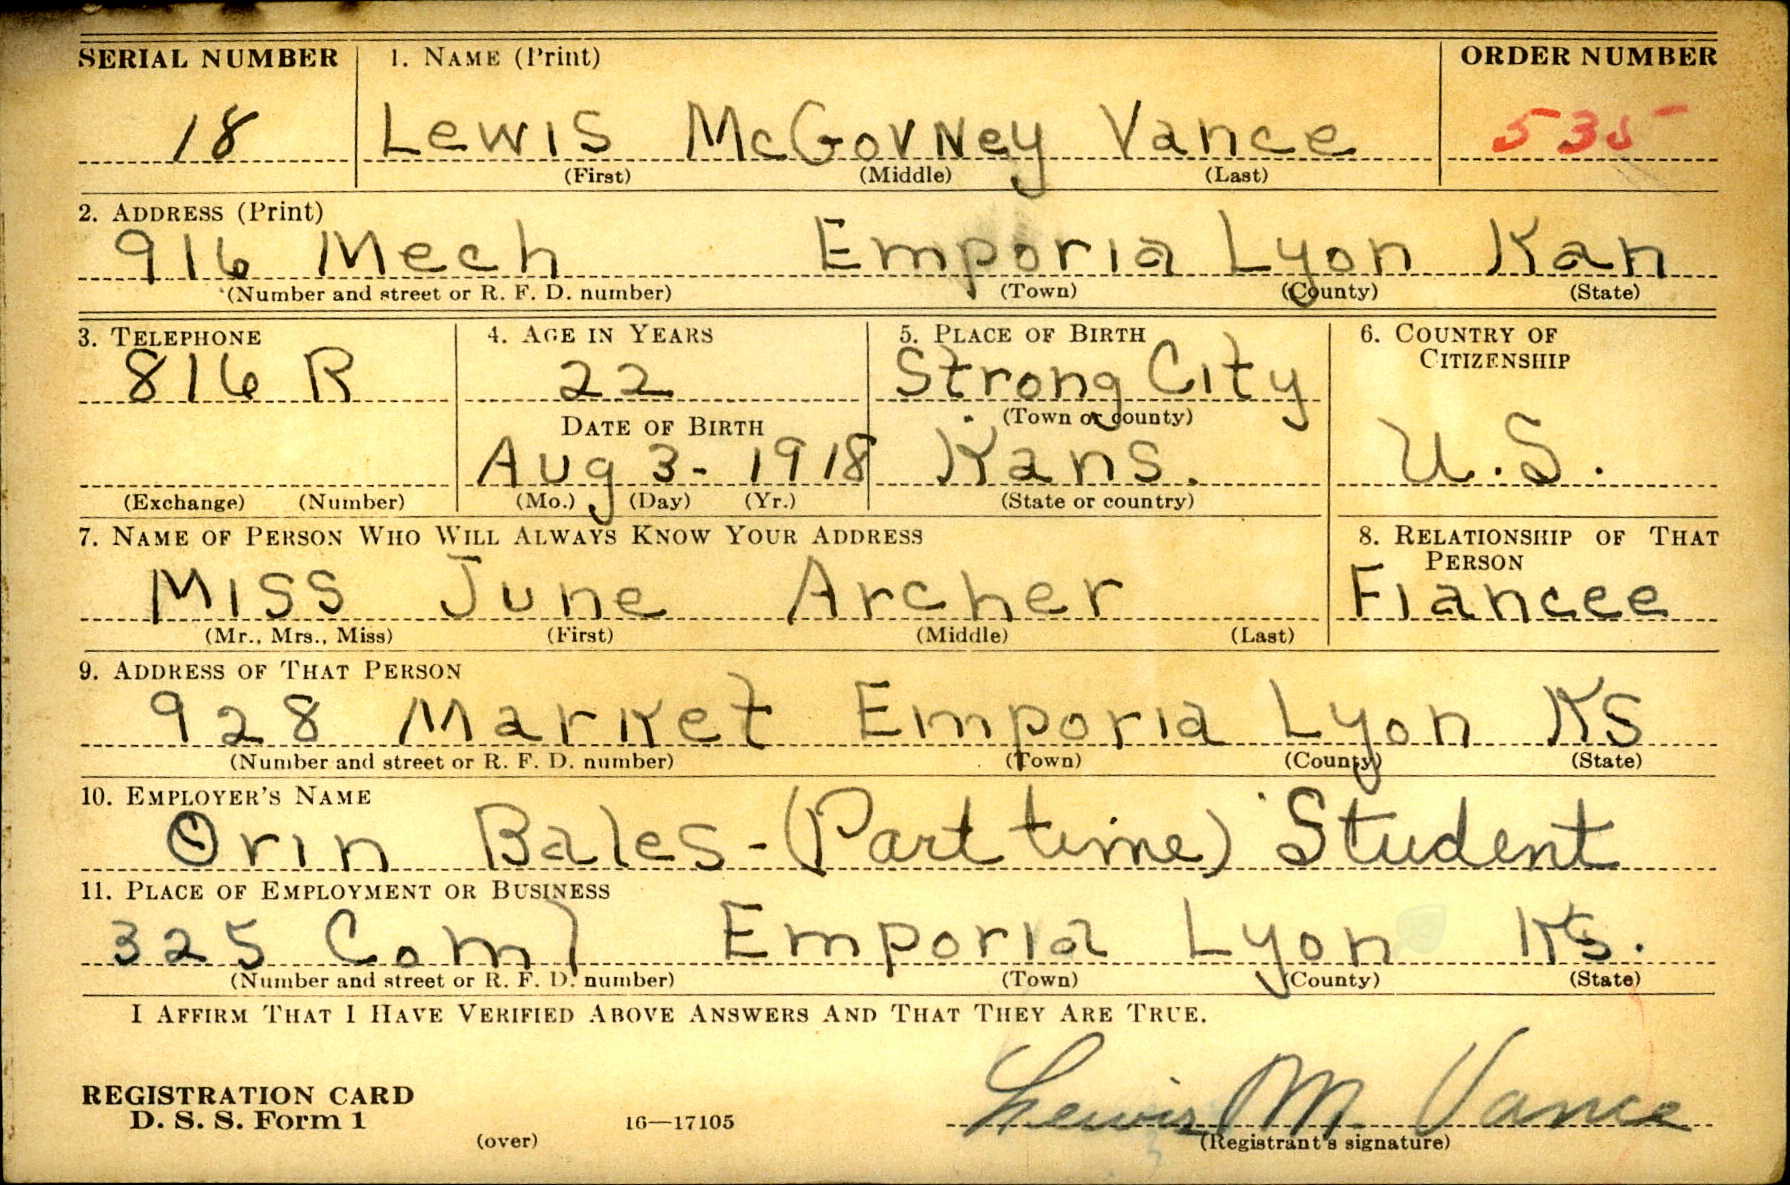 SERIAL NUMBER 1. NAME (Print) ORDER NUMBER
18 Lewis McGovney Vance 535
(First) (Middle) (Last)
2. ADDRESS (Print)
916 Mech Emporia Lyon Kan
(Number and street or R. F. D. number) (Town) (County) (State)
3. TELEPHONE 4. AGE IN YEARS 5. PLACE OF BIRTH 6. COUNTRY OF CITIZENSHIP
816 R 22 Strong City
DATE OF BIRTH (Town or county)
Aug 3 - 1918 Kans. U.S.
(Exchange) (Number) (Mo.) (Day) (Yr.) (State or country)
7. NAME OF PERSON WHO WILL ALWAYS KNOW YOUR ADDRESS 8. RELATIONSHIP OF THAT PERSON
Miss June Archer Fiancee
(Mr., Mrs., Miss) (First) (Middle) (Last)
9. ADDRESS OF THAT PERSON
928 Market Emporia Lyon KS
(Number and street or R. F. D. number) (Town) (County) (State)
10. EMPLOYER'S NAME
Orin Bales - (Part time) Student
11. PLACE OF EMPLOYMENT OR BUSINESS
325 Coml Emporia Lyon Ks.
(Number and street or R. F. D. number) (Town) (County) (State)
I AFFIRM THAT I HAVE VERIFIED ABOVE ANSWERS AND THAT THEY ARE TRUE.
REGISTRATION CARD
D. S. S. Form 1 16—17105 Lewis M. Vance
(over) (Registrant's signature)